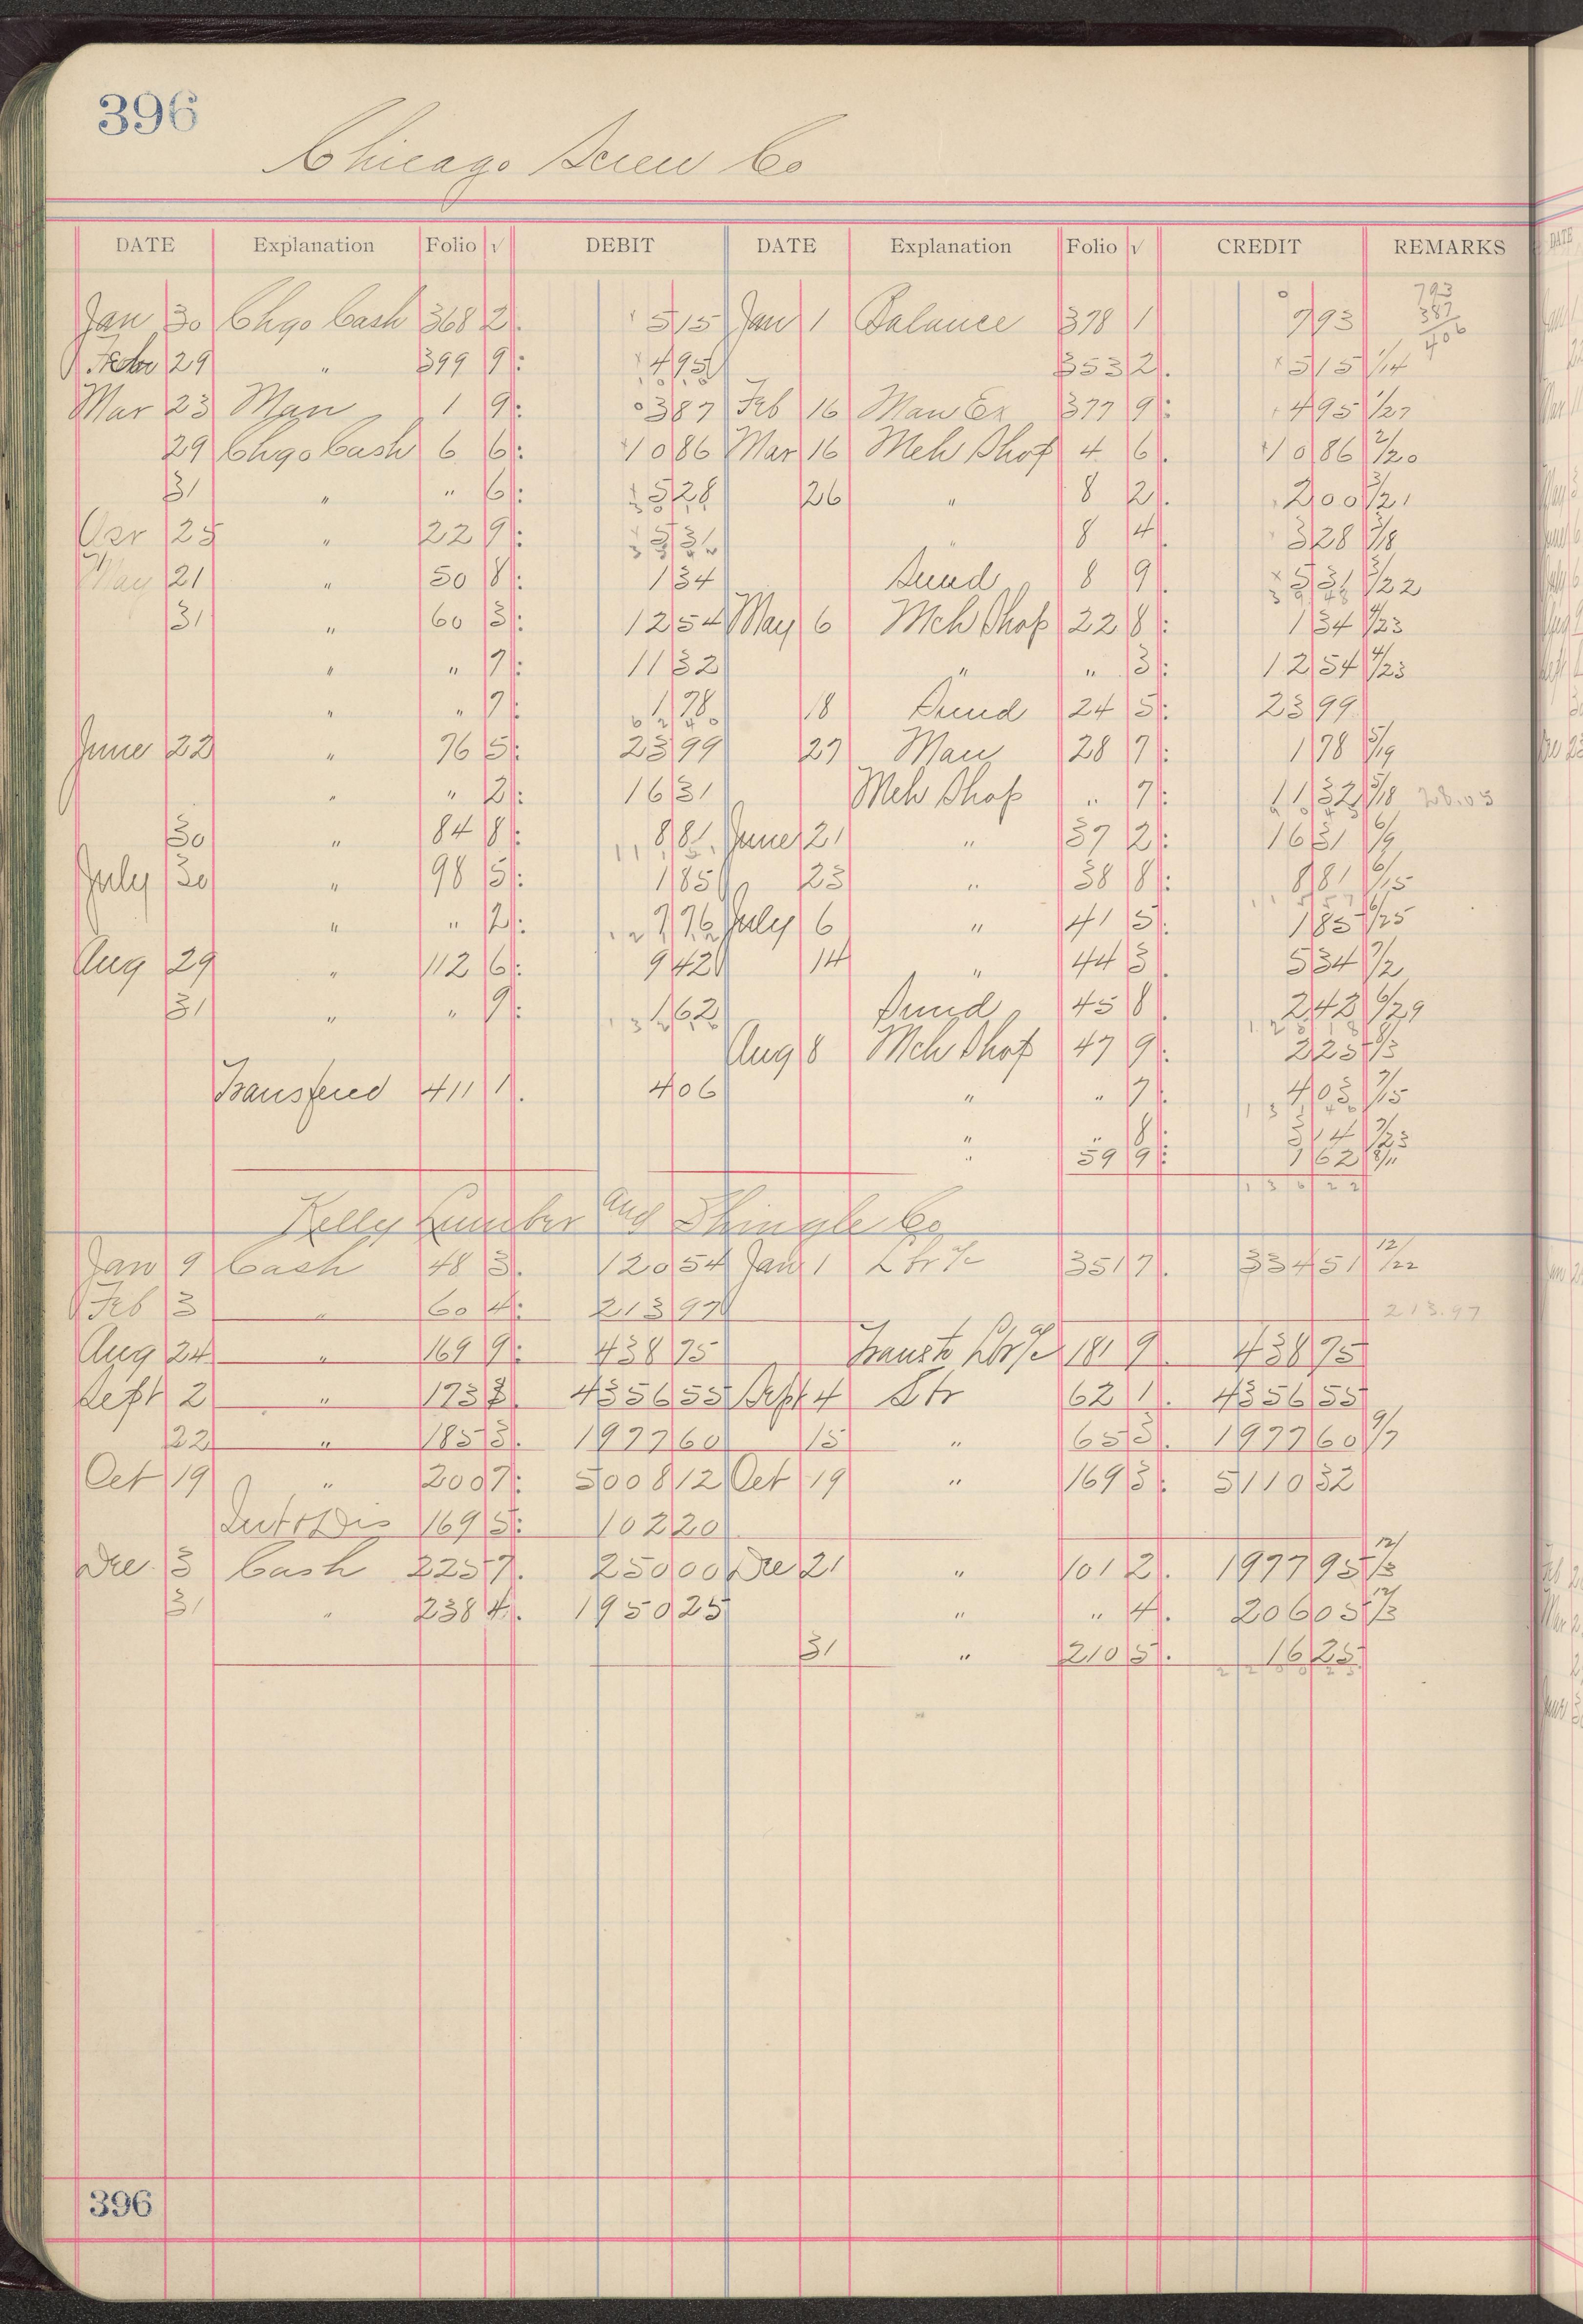 396
Chicago Screw Co
DATE Explanation Folio √ DEBIT DATE Explanation Folio √ CREDIT REMARKS
793
387
406
Jan 30 Chgo Cash 368 2 5 15 Jan 1 Balance 378 1 7 93
Feb 29 " 399 9 4 95 353 2 5 15 1/14
Mar 23 Man 1 9 3 87 Feb 16 Man Ex 377 9 4 95 1/27
29 Chgo Cash 6 6 10 86 Mar 16 Mch Shop 4 6 10 86 2/20
31 " " 6 5 28 26 " 8 2 2 00 3/21
Apr 25 " 22 9 5 31 " 8 4 3 28 3/18
May 21 " 50 8 1 34 Sund 8 9 5 31 3/22
31 " 60 3 12 54 May 6 Mch Shop 22 8 1 34 4/23
" " 7 11 32 " " 3 12 54 4/23
" " 7 1 78 18 Sund 24 5 23 99
June 22 " 76 5 23 99 27 Man 28 7 1 78 5/19
" " 2 16 31 Mch Shop " 7 11 32 5/18 28.03
30 " 84 8 8 81 June 21 " 37 2 16 31 6/9
July 30 " 98 5 1 85 23 " 38 8 8 81 6/15
" " 2 7 76 July 6 " 41 5 1 85 6/25
Aug 29 " 112 6 9 42 14 " 44 3 5 34 7/2
31 " " 9 1 62 Sund 45 8 2 42 6/29
Aug 8 Mch Shop 47 9 2 25 8/3
Transfered 411 1 4 06 " " 7 4 03 7/15
" " 8 3 14 7/23
" 59 9 1 62 8/11
1 3 6 2 2
Kelly Lumber and Shingle Co
Jan 9 Cash 48 3 120 54 Jan 1 Lbr a/c 351 7 334 51 12/22
Feb 3 " 60 4 213 97 213.97
Aug 24 " 169 9 438 75 Trans to Lbr a/c 181 9 438 75
Sept 2 " 173 3 4356 55 Sept 4 Lbr 62 1 4356 55
22 " 185 3 1977 60 15 " 65 3 1977 60 9/7
Oct 19 " 200 7 5008 12 Oct 19 " 169 3 5110 32
Int & Dis 169 5 102 20
Dec 3 Cash 225 7 250 00 Dec 21 " 101 2 1977 95 12/3
31 " 238 4 1950 25 " " 4 206 05 12/3
31 " 210 5 16 25
396